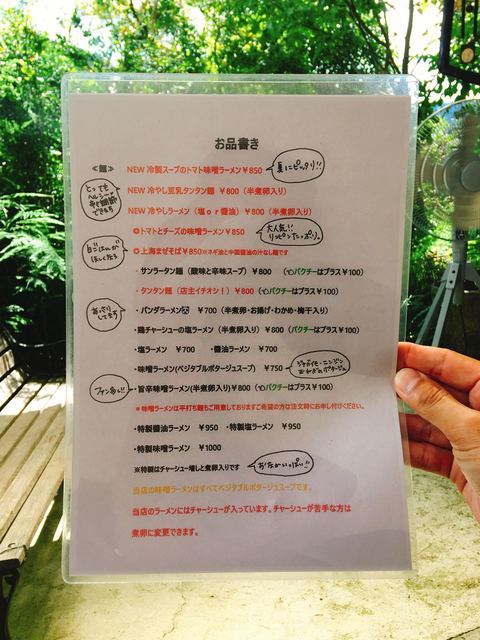 お品書き
≪麺≫
NEW 冷製スープのトマト味噌ラーメン￥850
夏にピッタリ!!
NEW 冷やし豆乳タンタン麺 ￥800（半煮卵入り）
とっても
ヘルシー♥
NEW 冷やしラーメン（塩ｏｒ醤油）￥800（半煮卵入り）
トマトとチーズの味噌ラーメン￥850
大人気!!
リッピンたっぷり。
上海まぜそば￥850※ネギ油と中国醤油の汁なし麺です
白ごはんが
ほしくなる
・サンラータン麺（酸味と辛味スープ）￥800 （パクチーはプラス￥100）
・タンタン麺（店主イチオシ！） ￥800 （パクチーはプラス￥100）
・パンダラーメン ￥700（半煮卵・お揚げ・わかめ・梅干入り）
あっさり
してます
・鶏チャーシューの塩ラーメン（半煮卵入り）￥800（パクチーはプラス￥100）
・塩ラーメン ￥700 ・醤油ラーメン ￥700
・味噌ラーメン(ベジタブルポタージュスープ) ￥750
ジャガイモ・ニンジン
玉ねぎのポタージュ
・旨辛味噌ラーメン(半煮卵入り)￥800（パクチーはプラス￥100）
ファン多い!!
＊味噌ラーメンは平打ち麺もご用意しておりますご希望の方は注文時にお申し付けください。
・特製醤油ラーメン ￥950 ・特製塩ラーメン ￥950
・特製味噌ラーメン ￥1000
※特製はチャーシュー増しと煮卵入りです
おなかいっぱい!!
当店の味噌ラーメンはすべてベジタブルポタージュスープです。
当店のラーメンにはチャーシューが入っています。チャーシューが苦手な方は
煮卵に変更できます。